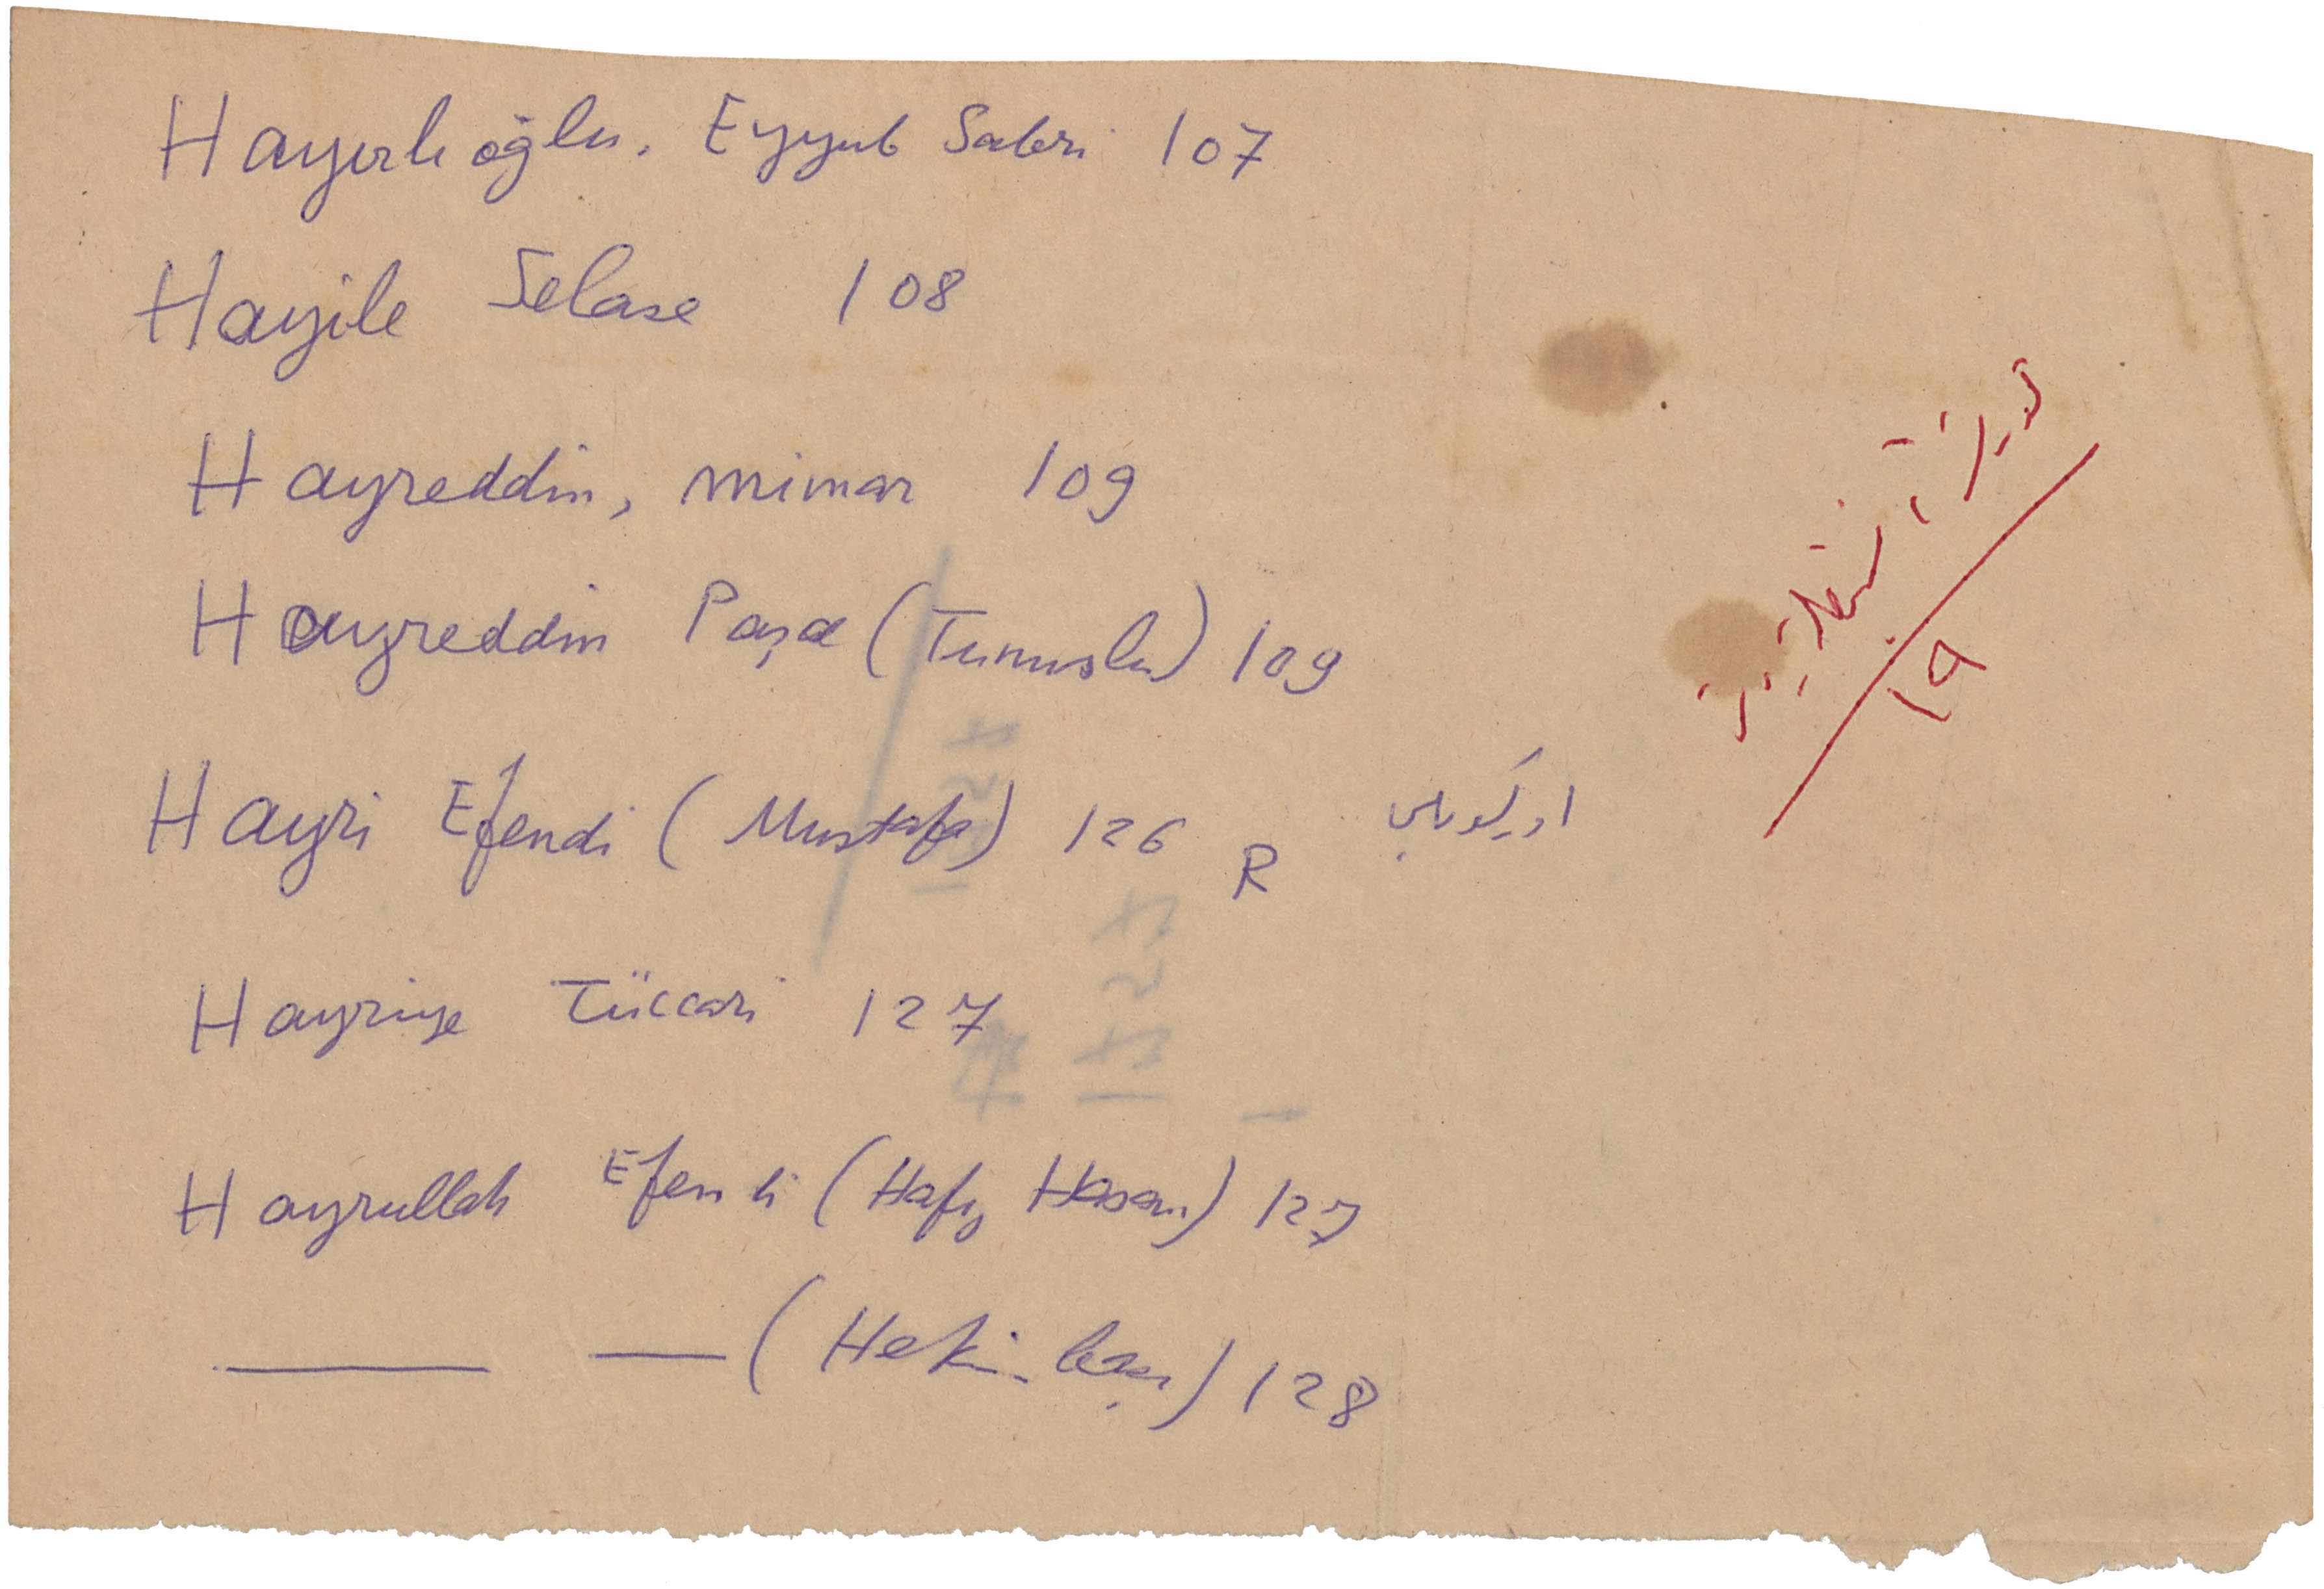 Hayırlıoğlu, Eyyub Sabri 107
Hayile Selase 108
Hayreddin, mimar 109
Hayreddin Paşa (Tunuslu) 109
Hayri Efendi (Mustafa) 126 R
Hayriye Tüccarı 127
Hayrullah Efendi (Hafız Hasan) 127
——— — (Hekimbaşı) 128
١٩